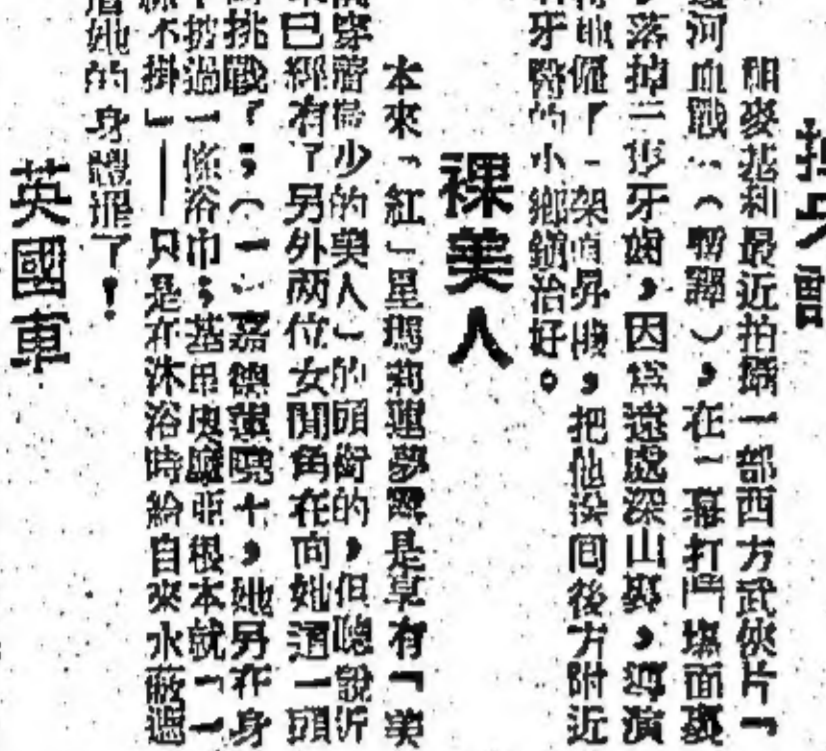 掉牙記
和麥基利最近拍攝一部西方武俠片「
河血戰」(暫譯),在一幕打鬥場面裏
落掉二 牙齒,因為遠處深山 ,導演
他僱了一架直昇機,把他送回後方附近
牙醫的小鄉鎮治好。
裸美人
本來「紅」星瑪莉蓮夢露是享有「美
穿 最少的美人」的頭銜的,但聽說近
已經有了另外两位女 角在向她這一頭
挑戰了;(一)嘉 十,她另在身
披過一條浴巾;基 亞根本就「一
絲不掛」——只是在沐浴時給自來水蔽遮
着她的身體罷了!
英國車